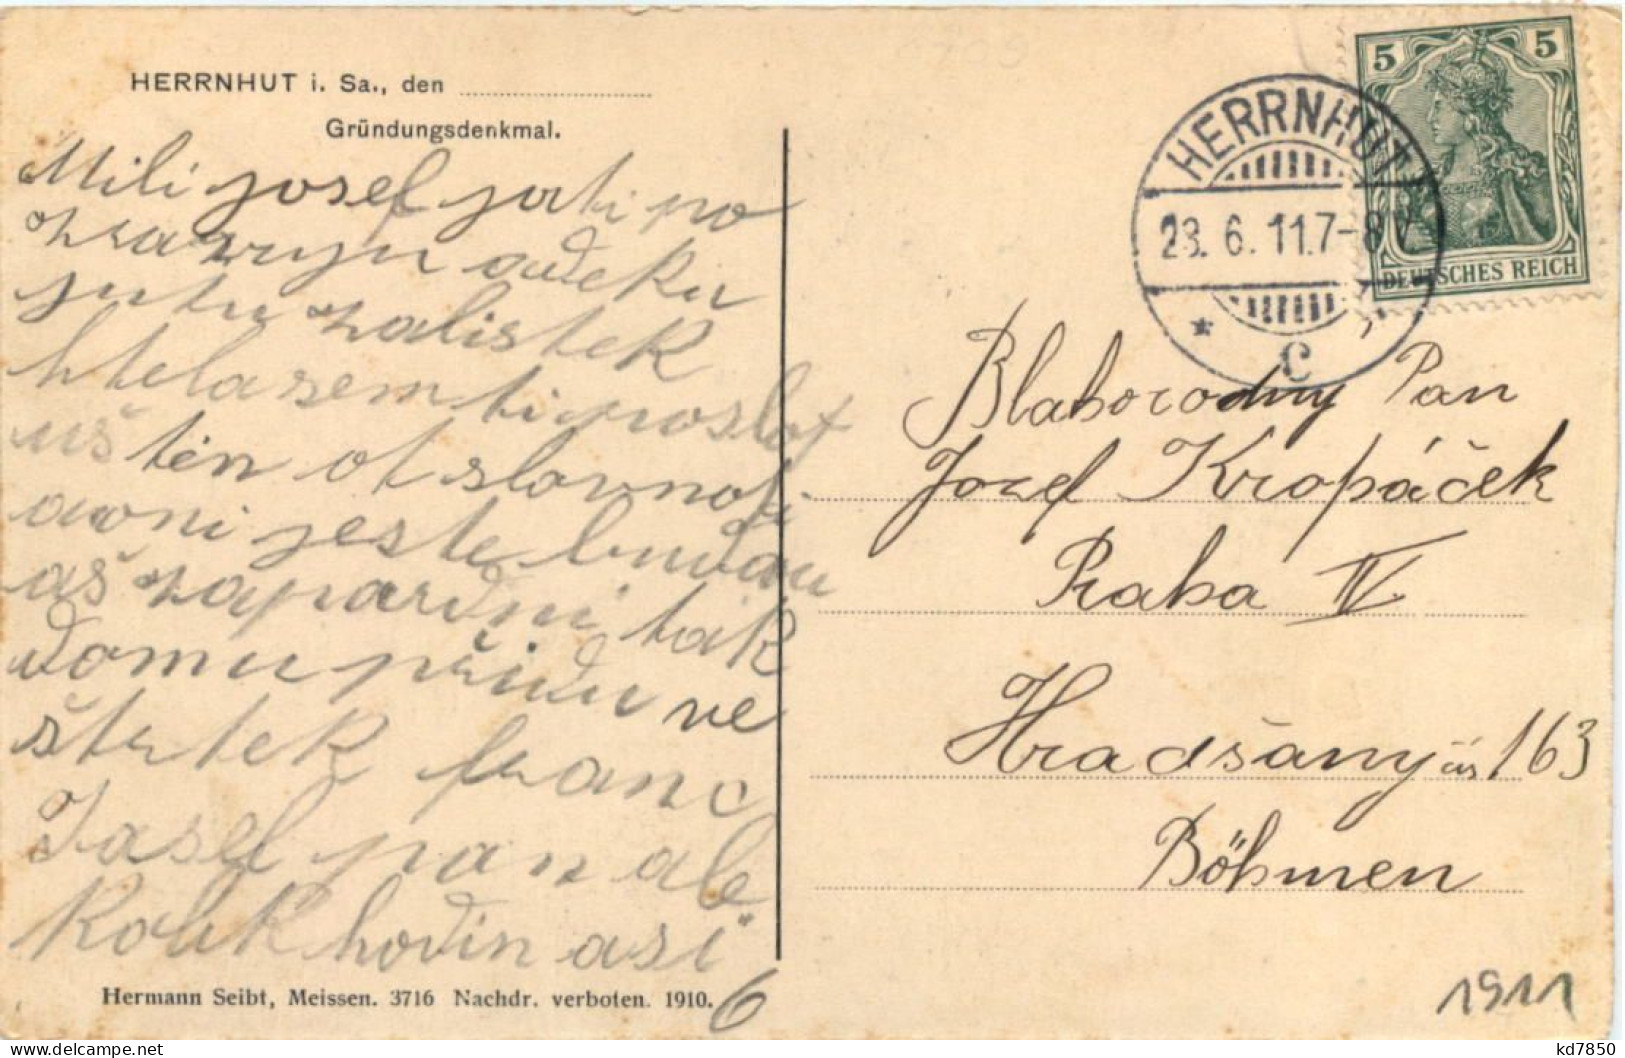 HERRNHUT i. Sa., den
Gründungsdenkmal.
Mili josef ja ti po
zravuju aďeku
ju tu za listek
htela sem ti poslat
uš ten ot slavnoſti
avoni jeste buďou
aš zaparďni tak
domu přiďu ve
štrtek franc
Jasef pan ale
Kolik hoďin asi
6
Hermann Seibt, Meissen. 3716 Nachdr. verboten. 1910.
HERRNHUT
23. 6. 11.7-8V
* c
5 5
DEUTSCHES REICH
Blahorodny Pan
Josef Kropáček
Praha IV.
Hradšany čís 163
Böhmen
1911
kd7850